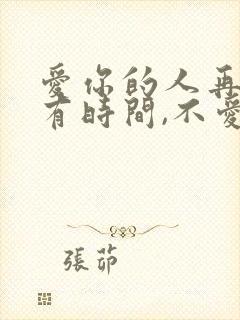 愛你的人再
有時間,不愛
張茆